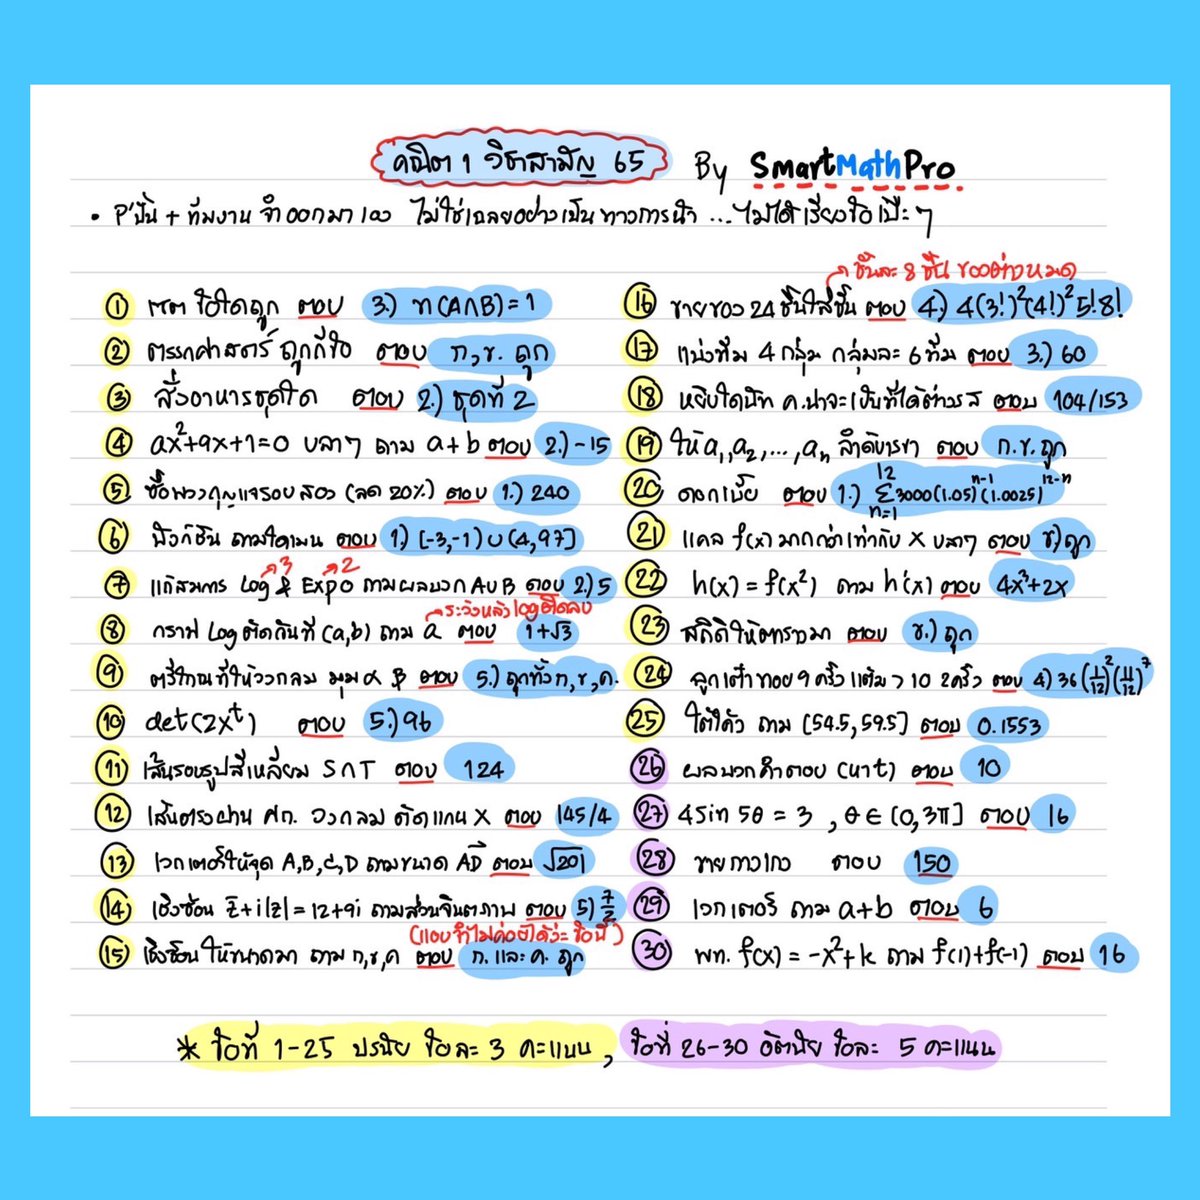 คณิต 1 วิชาสามัญ 65 By SmartMathPro
• P'ปั้น + ทีมงาน จำออกมาเอง ไม่ใช่เฉลยอย่างเป็นทางการน้า ...ไม่ได้เรียงข้อเป๊ะๆ
① เซต ข้อใดถูก ตอบ 3.) n(A∩B)=1
② ตรรกศาสตร์ ถูกกี่ข้อ ตอบ ก,ข. ถูก
③ สั่งอาหารชุดใด ตอบ 2.) ชุดที่ 2
④ ax²+9x+1=0 บลาๆ ถาม a+b ตอบ 2.) -15
⑤ ซื้อพวงกุญแจรอบสอง (ลด 20%) ตอบ 1.) 240
⑥ ฟังก์ชัน ถามโดเมน ตอบ 1.) [-3,-1)∪(4,97]
⑦ แก้สมการ Log & Expo ถามผลบวก A∪B ตอบ 2.) 5
3 2
⑧ กราฟ Log ตัดกันที่ (a,b) ถาม a ตอบ 1+√3
ระวังหลัง log ติดลบ
⑨ ตรีโกณที่ให้วงกลม มุม α β ตอบ 5.) ถูกทั้ง ก,ข,ค.
⑩ det(2xᵗ) ตอบ 5.) 96
⑪ เส้นรอบรูปสี่เหลี่ยม SΠT ตอบ 124
⑫ เส้นตรงผ่าน ศก. วงกลม ตัดแกน X ตอบ 145/4
⑬ เวกเตอร์ให้จุด A,B,C,D ถามขนาด AD ตอบ √201
⑭ เชิงซ้อน z̄+i|z|=12+9i ถามส่วนจินตภาพ ตอบ 5) 7/2
(แอบจำไม่ค่อยได้ว่ะ ข้อนี้)
⑮ เชิงซ้อน ให้ขนาดมา ถาม ก,ข,ค ตอบ ก. และ ค. ถูก
ชั้นละ 8 ชิ้น ของต่างหมด
⑯ ขายของ 24 ชิ้นใส่ชั้น ตอบ 4.) 4(3!)²(4!)²5!8!
⑰ แบ่งทีม 4 กลุ่ม กลุ่มละ 6 ทีม ตอบ 3.) 60
⑱ หยิบโดนัท ค.น่าจะเป็นที่ได้ต่างรส ตอบ 104/153
⑲ ให้ a₁,a₂,...,aₙ ลำดับเรขา ตอบ ก.ข. ถูก
⑳ ดอกเบี้ย ตอบ 1.) Σ 3000(1.05)ⁿ⁻¹(1.0025)¹²⁻ⁿ
12
n=1
㉑ แคล f(x) มากกว่าเท่ากับ X บลาๆ ตอบ ข) ถูก
㉒ h(x) = f(x²) ถาม h'(x) ตอบ 4x³+2x
㉓ สถิติให้ตารางมา ตอบ ข.) ถูก
㉔ ลูกเต๋าทอย 9 ครั้ง แต้ม > 10 2 ครั้ง ตอบ 4) 36(1/12)²(11/12)⁷
㉕ ใต้โค้ง ถาม [54.5, 59.5] ตอบ 0.1553
㉖ ผลบวกคำตอบ (หาt) ตอบ 10
㉗ 4sin 5θ = 3 , θ ∈ [0,3π] ตอบ 16
㉘ ขายกางเกง ตอบ 150
㉙ เวกเตอร์ ถาม a+b ตอบ 6
㉚ พท. f(x) = -x²+k ถาม f(1)+f(-1) ตอบ 16
* ข้อที่ 1-25 ปรนัย ข้อละ 3 คะแนน , ข้อที่ 26-30 อัตนัย ข้อละ 5 คะแนน